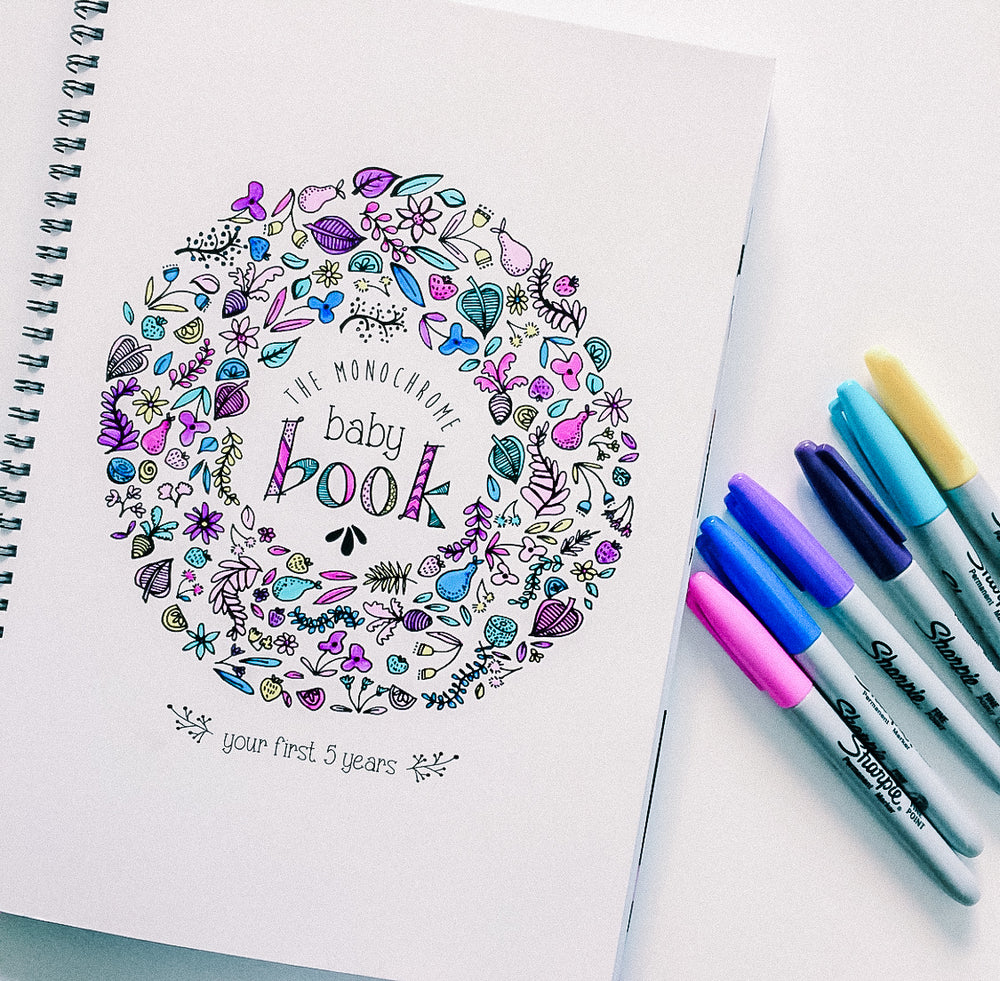 THE MONOCHROME
baby
book
your first 5 years
Sharpie
Sharpie
Sharpie
Permanent Marker
Sharpie
Sharpie
Permanent Marker
FINE POINT